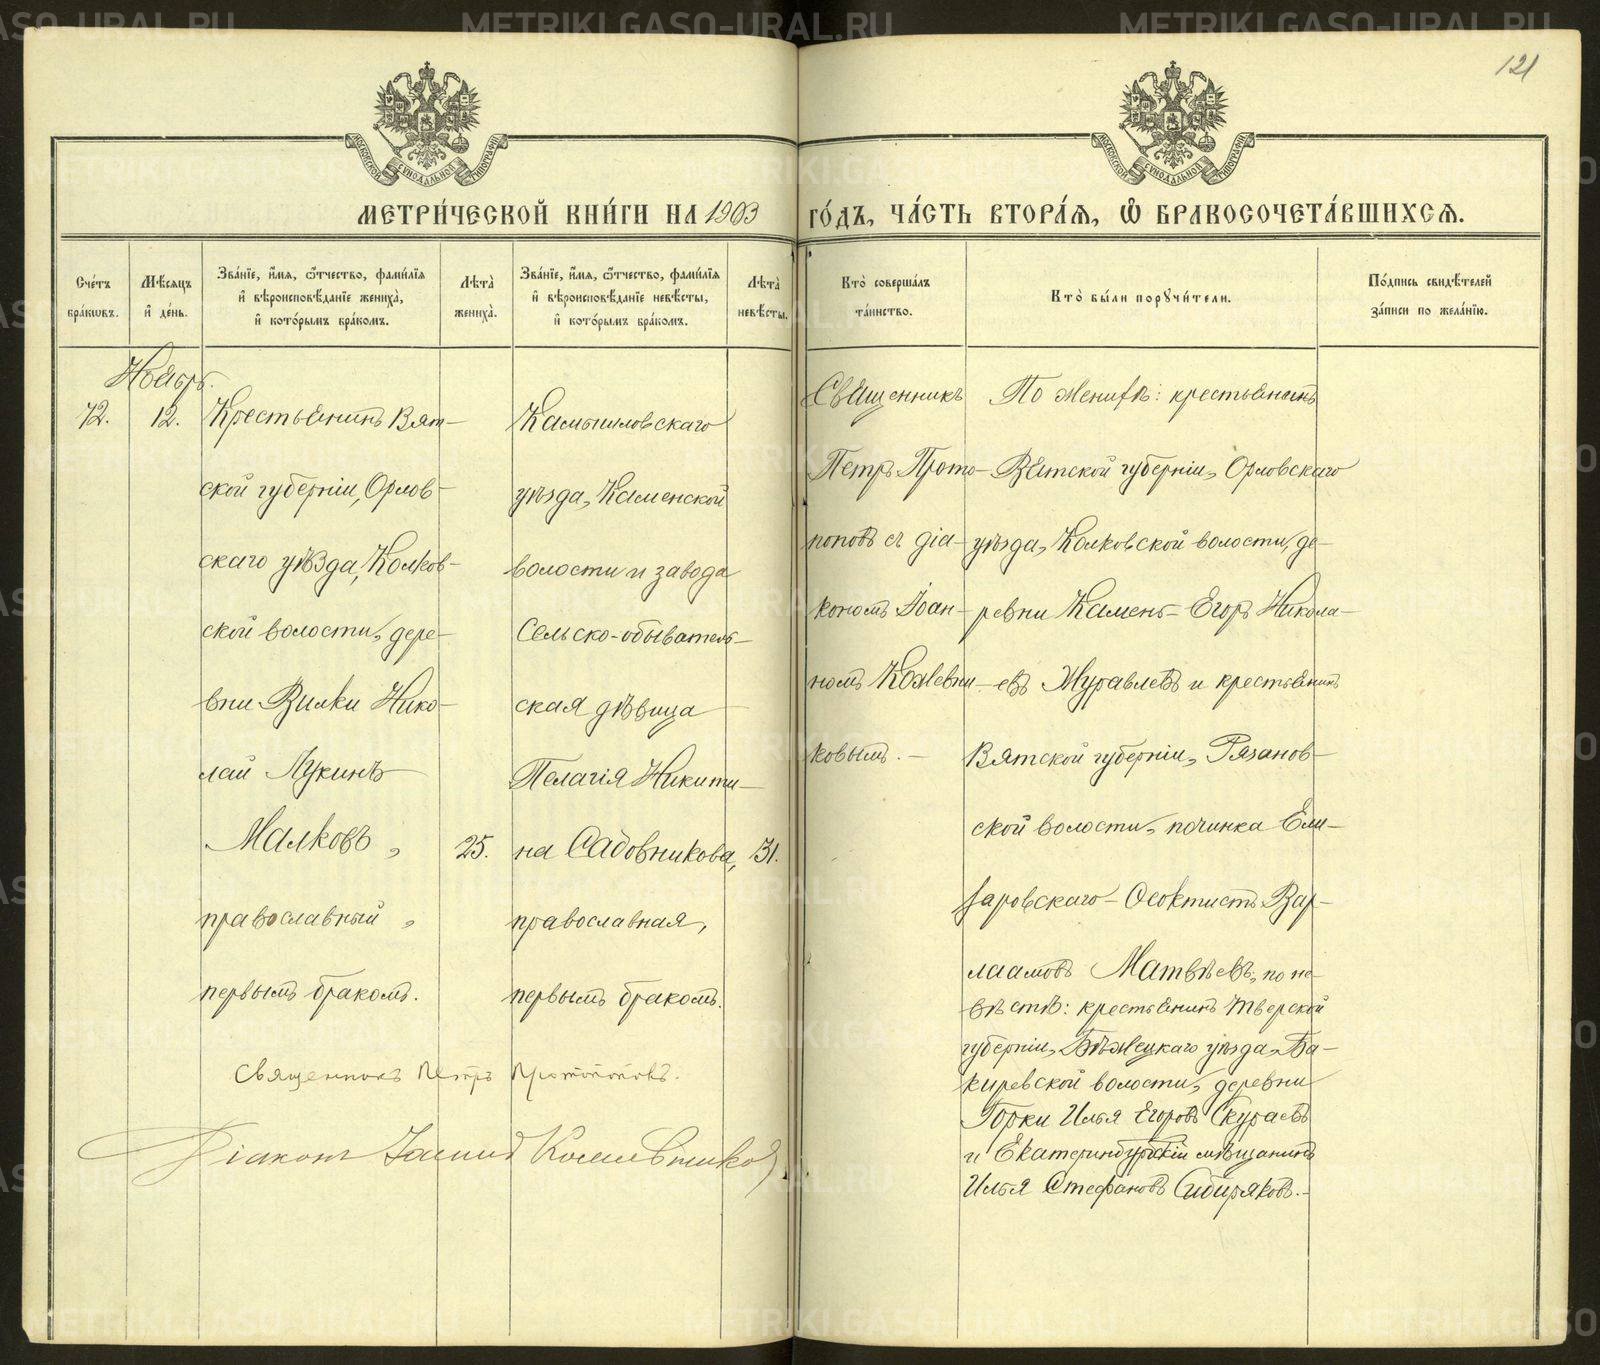 121
МОСКОВСКОЙ СѴНОДАЛЬНОЙ ТИПОГРАФІИ
МОСКОВСКОЙ СѴНОДАЛЬНОЙ ТИПОГРАФІИ
МЕТРИ́ЧЕСКОЙ КНИ́ГИ НА 1903 ГО́ДЪ, ЧА́СТЬ ВТОРА́Ѧ, Ѽ БРАКОСОЧЕТА́ВШИХСѦ.
Сче́тъ бра́кѡвъ.
Мѣ́сѧцъ и҆ де́нь.
Зва́нїе, и҆́мѧ, ѻ҆́тчество, фами́лїѧ
и҆ вѣроисповѣ́данїе жениха̀,
и҆ кото́рымъ бра́комъ.
Лѣ́та̀ жениха̀.
Зва́нїе, и҆́мѧ, ѻ҆́тчество, фами́лїѧ
и҆ вѣроисповѣ́данїе невѣ́сты,
и҆ кото́рымъ бра́комъ.
Лѣ́та̀ невѣ́сты.
Кто̀ соверша́лъ та́инство.
Кто̀ бы́ли порꙋчи́тели.
По́дпись свидѣ́телей
за́писи по жела́нїю.
Ноябрь.
72.
12.
Крестьянинъ Вят-
ской губерніи, Орлов-
скаго уѣзда, Колков-
ской волости, дере-
вни Вилки Нико-
лай Лукинъ
Малковъ,
православный,
первымъ бракомъ.
25.
Камышловскаго
уѣзда, Каменской
волости и завода
Сельско-обыватель-
ская дѣвица
Пелагія Никити-
на Садовникова,
православная,
первымъ бракомъ.
31.
Священникъ
Петръ Прото-
поповъ съ діа-
кономъ Іоан-
номъ Кожевни-
ковымъ.-
По женихѣ: крестьянинъ
Вятской губерніи, Орловскаго
уѣзда, Колковской волости, де-
ревни Камень- Егоръ Никола-
евъ Журавлевъ и крестьянинъ
Вятской губерніи, Рязанов-
ской волости, починка Ели-
заровскаго- Ѳеоктистъ Вар-
лаамовъ Матвѣевъ; по не-
вѣстѣ: крестьянинъ Тверской
губерніи, Бѣжецкаго уѣзда, Ба-
киревской волости, деревни
Горки Илья Егоровъ Скураевъ
и Екатеринбургскій мѣщанинъ
Илья Стефановъ Сибиряковъ.-
Священникъ Петръ Протопоповъ.
Діаконъ Іоаннъ Кожевниковъ